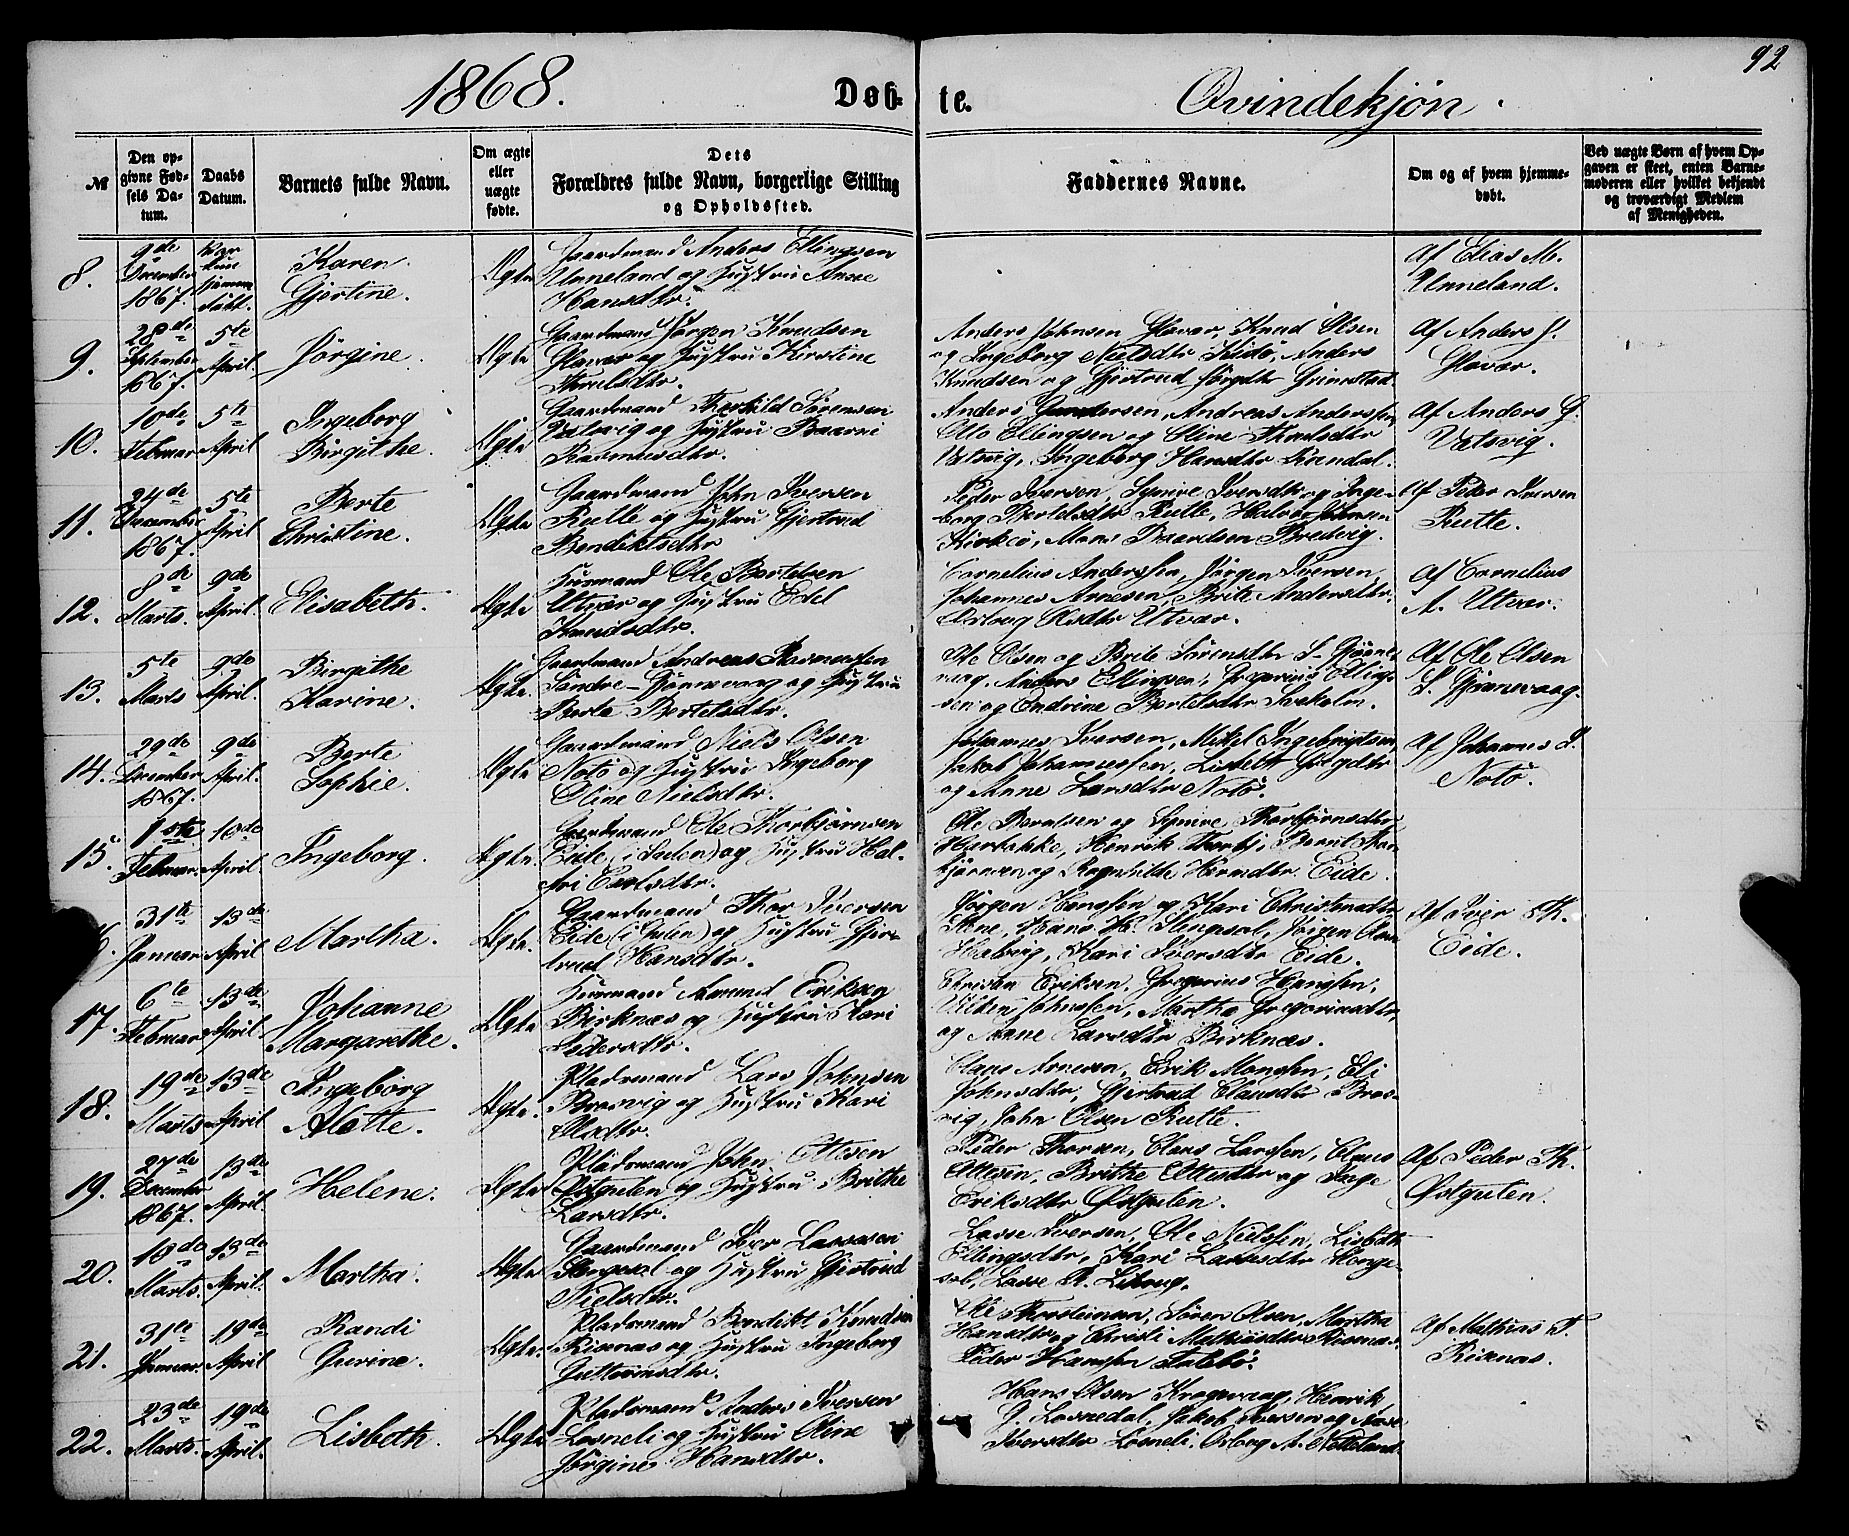 92
1868.
Døb-
te.
Qvindekjøn.
№
Den op-
givne Fød-
sels Da-
tum.
Daabs
Datum.
Barnets fulde Navn.
Om ægte
eller
uægte
fødte.
Dets
Forældres fulde Navn, borgerlige Stilling
og Opholdssted.
Faddernes Navne.
Om og af hvem hjemme-
døbt.
Ved uægte Børn af hvem Op-
gaven er skeet, enten Barne-
moderen eller hvilket bekjendt
og troværdigt Medlem
af Menigheden.
8.
9de
December
1867.
Kun
hjemme
døbt.
Karen
Gjertine.
Ægte
Gaardmand Anders Ellingsen
Unneland og Hustru Anne
Hansdtr.
Af Elias M.
Unneland.
9.
28de
September
1867.
5te
April.
Jørgine.
Ægte
Gaardmand Jørgen Knudsen
Glavær og Hustru Kirstine
Anders Johnsen Glavær, Knud Olsen
og Ingeborg Nielsdtr Anders
Knudsen og Gjertrud Grimstad
Af Anders J.
Glavær.
10.
10de
Februar
5te
April
Ingeborg
Birgithe.
Ægte
Gaardmand Sørensen
Vatsvig og Hustru
Rasmusdtr.
Anders Andreas Anderssen
Otto Ellingsen og Oline
Vatsvig, Ingeborg Hansdtr
Af Anders G.
Vatsvig.
11.
24de
December
1867.
5te
April
Berte
Christine.
Ægte
Gaardmand John Iversen
Rutle og Hustru Gjertrud
Bendiktsdtr
Peder Iversen, Synive Iversdtr og Inge-
borg Bertelsdtr Rutle,
Mons Baardsen Bredvig.
Af Peder Iversen
Rutle.
12.
8de
Marts.
9de
April.
Elisabeth.
Ægte
Huusmand Ole Bertelsen
Utvær og Hustru Edel
Knudsdtr.
Cornelius Anderssen, Jørgen Iversen,
Johannes Arnesen, Brite Andersdtr,
Olsdtr Utvær.
Af Cornelius
A. Utvær.
13.
5te
Marts
9de
April.
Birgithe
Karine.
Ægte
Gaardmand Andreas Rasmussen
Søndre-Gjønnevaag og Hustru
Berte Bertelsdtr.
Ole Olsen og Brite Sørensdtr S. Gjønne-
vaag, Anders Ellingsen, Gregorius Elling-
sen og Endrine Bertelsdtr
Af Ole Olsen
S. Gjønnevaag.
14.
29de
December
1867.
9de
April.
Berte
Sophie.
Ægte
Gaardmand Niels Olsen
Notø og Hustru Ingeborg
Oline Nielsdtr.
Johannes Iversen, Mikel Ingebrigtsen,
Jakob Johannessen, Lisbeth
og Anne Larsdtr Notø.
Af Johannes I.
Notø.
15.
1ste
Februar.
10de
April.
Ingeborg.
Ægte
Gaardmand Ole Thorbjørnsen
Eide (i Sulen) og Hustru Hal-
fri Carlsdtr.
Ole og Synive Thorbjørnsdtr
Henrik
og Ragnhilde Eide.
31te
Januar
13de
April
Martha.
Ægte
Gaardmand Thor Iversen
Eide (i Sulen) og Hustru Gjer-
trud Hansdtr.
Jørgen Hanssen og Kari
Hans H. Jørgen
Kari Iversdtr Eide.
Af Iver Th.
Eide.
17.
6te
Februar
13de
April
Johanne
Margarethe.
Ægte
Huusmand Amund Eriksen
Birknæs og Hustru Kari
Pedersdtr.
Christen Eriksen, Gregorius Hanssen,
Johnssen, Martha Gregoriusdtr,
og Anne Larsdtr Birknæs.
18.
19de
Marts
13de
April
Ingeborg
Alette.
Ægte.
Pladsmand Lars Johnsen
Brosvig og Hustru Kari
Olsdtr.
Claus Arnesen, Erik Monssen, Eli
Johnsdtr, Gjertrud Clausdtr Bros-
vig, John Olsen Rutle.
19.
27de
December
1867.
13de
April
Helene.
Ægte
Pladsmand John Ottesen
Østgulen og Hustru Brithe
Larsdtr.
Peder Thorsen, Claus Larssen, Claus
Ottesen, Brithe Ottesdtr og Inge
Eriksdtr Østgulen.
Af Peder Th.
Østgulen.
20.
10de
Marts.
13de
April.
Martha.
Ægte
Gaardmand Iver Lassesen
og Hustru Gjertrud
Nielsdtr.
Lasse Iversen, Ole Neilssen, Lisbeth
Ellingsdtr, Kari Lassesdtr
Lasse
21.
31te
Januar.
19de
April
Randi
Gurine.
Ægte.
Pladsmand Bendikt Knudsen
Risnæs og Hustru Ingeborg
Guttormsdtr.
Ole Thorsteinsen, Søren Olsen, Martha
Hansdtr og Christi Mathiasdtr Risnæs.
Peder Hanssen
Af Mathias T.
Risnæs.
22.
23de
Marts.
19de
April.
Lisbeth.
Ægte
Pladsmand Anders Iversen
Losneli og Hustru Oline
Jørgine Hansdtr.
Hans Olsen Krogevaag, Henrik
J. Losnedal, Jakob Iversen og
Iversdtr Losneli,